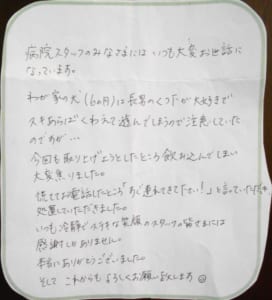 病院スタッフのみなさまには いつも大変お世話に
なっています。
わが家の犬(6ヵ月)は長男のくつ下が大好きで
スキあらばくわえて遊んでしまうので注意していた
のですが…
今回も取り上げようとしたところ飲み込んでしまい
大変焦りました。
慌ててお電話したところ「すぐ連れてきて下さい!」と言っていただき
処置していただきました。
いつも冷静でステキな笑顔のスタッフの皆さまには
感謝しかありません。
本当にありがとうございました。
そして これからもよろしくお願い致します